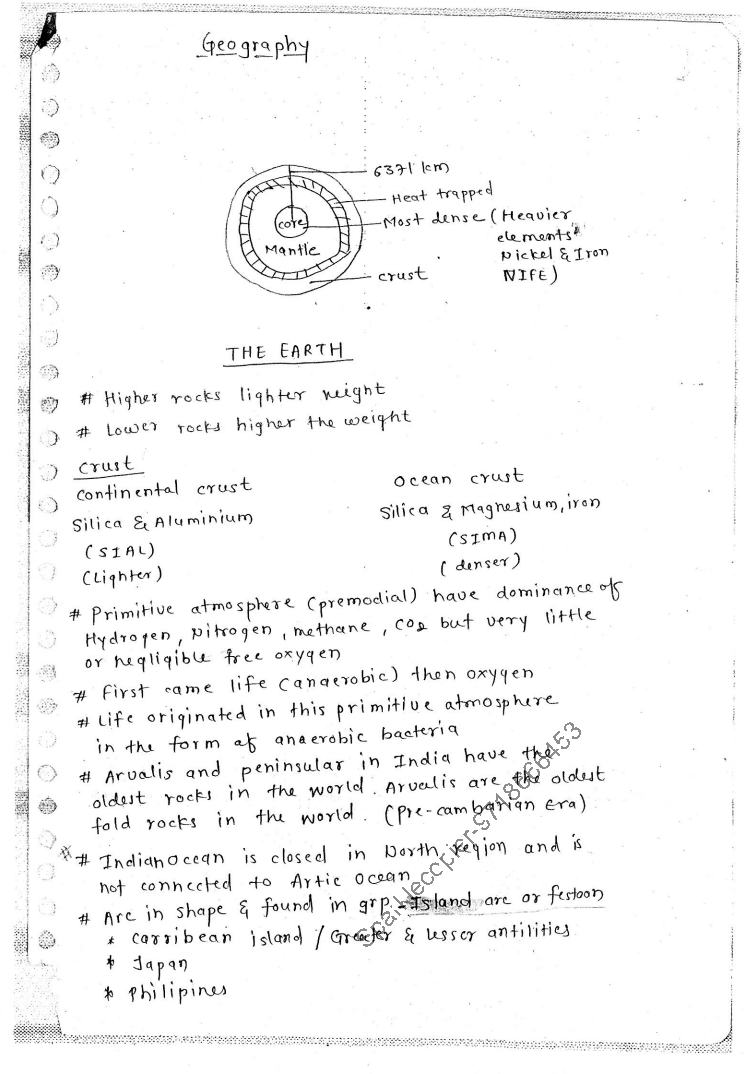 Geography
6371 km
Heat trapped
Most dense (Heavier
elements"
Nickel & Iron
NIFE)
core
Mantle
crust
THE EARTH
# Higher rocks lighter weight
# Lower rocks higher the weight
Crust
Continental crust
Ocean crust
Silica & Aluminium
Silica & Magnesium, iron
(SIAL)
(SIMA)
(Lighter)
(denser)
# Primitive atmosphere (premodial) have dominance of
Hydrogen, Nitrogen, methane, CO2 but very little
or negligible free oxygen
# First came life (anaerobic) then oxygen
# Life originated in this primitive atmosphere
in the form of anaerobic bacteria
# Arvalis and peninsular in India have the
oldest rocks in the world. Arvalis are the oldest
fold rocks in the world. (Pre-cambarian Era)
* # Indian Ocean is closed in North Region and is
not connected to Artic Ocean
# Arc in shape & found in grp - Island arc or festoon
* Carribean island / Greater & lesser antilities
* Japan
* Philipines